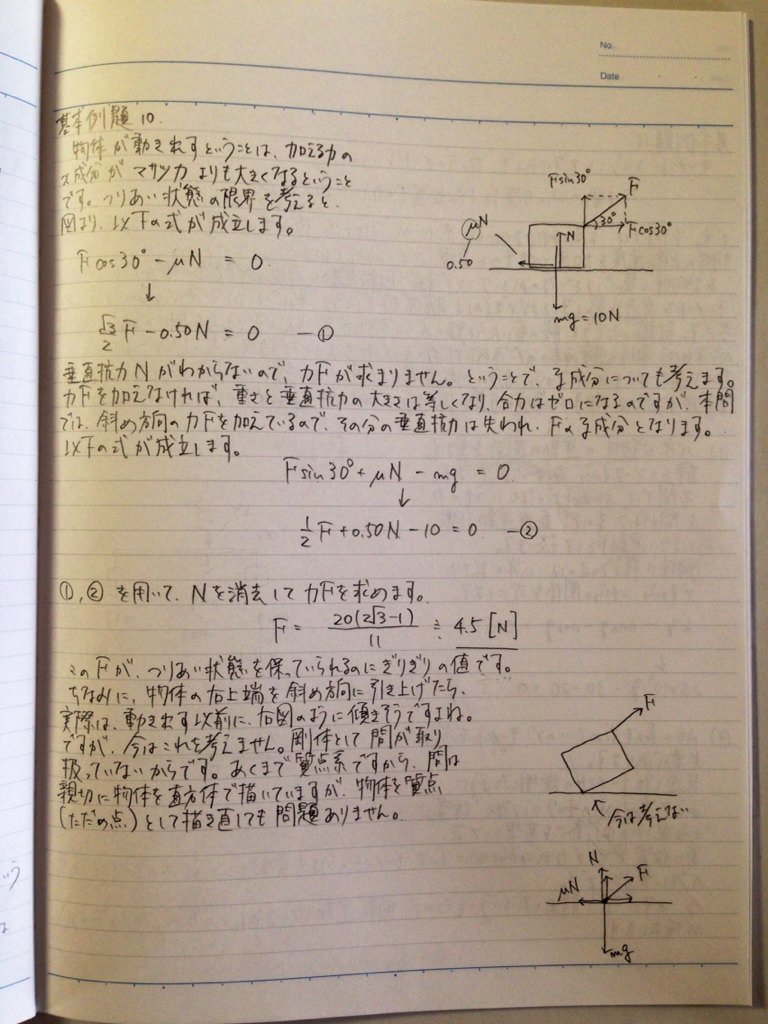 No.
Date
基本例題 10.
物体が動き出すということは、加える力の
x成分がマサツ力よりも大きくなるということ
です。つりあい状態の限界を考えると、
図より、以下の式が成立します。
Fcos30° - μN = 0
↓
√3/2 F - 0.50N = 0 ―①
Fsin30°
F
μN
N
30°
Fcos30°
0.50
mg = 10N
垂直抗力Nがわからないので、力Fが求まりません。ということで、y成分についても考えます。
力Fを加えなければ、重さと垂直抗力の大きさは等しくなり、合力はゼロになるのですが、本問
では、斜め方向の力Fを加えているので、その分の垂直抗力は失われ、Fのy成分となります。
以下の式が成立します。
Fsin30° + μN - mg = 0
↓
1/2 F + 0.50N - 10 = 0 ―②
①,②を用いて、Nを消去して力Fを求めます。
F = 20(2√3-1)/11 ≒ 4.5 [N]
このFが、つりあい状態を保っていられるのにぎりぎりの値です。
ちなみに、物体の右上端を斜め方向に引き上げたら、
実際は、動き出す以前に、右図のように傾きそうですよね。
ですが、今はこれを考えません。剛体として問が取り
扱っていないからです。あくまで質点系ですから、問は
親切に物体を直方体で描いていますが、物体を質点
(ただの点)として描き直しても問題ありません。
F
今は考えない
N
F
μN
mg